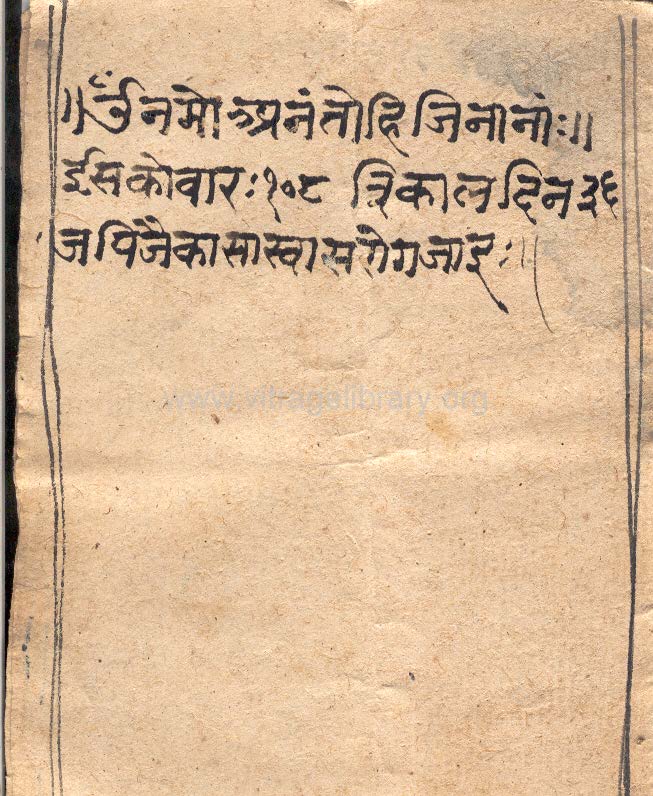 ॥ॐ नमो अनंतोहि जिनानां:॥
ईसको वार:१०८ त्रिकाल दिन ३६
जपिजै कासास्वासरोग जाइ:॥
www.vitragelibrary.org